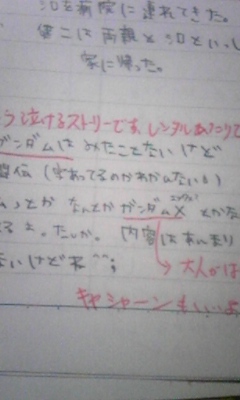 シロを病院に連れてきた。
両親とシロといっし
家に帰った。
う泣けるストーリーです。レンタルあたりで
ガンダムはみたことないけど
闘伝（字あってるのかわかんない
ム）とか なんとかガンダムX エックス とかな
ると。たしか。内容はあんまり
ないけどね^^;
→大人がは
キャシャーンもいいよ